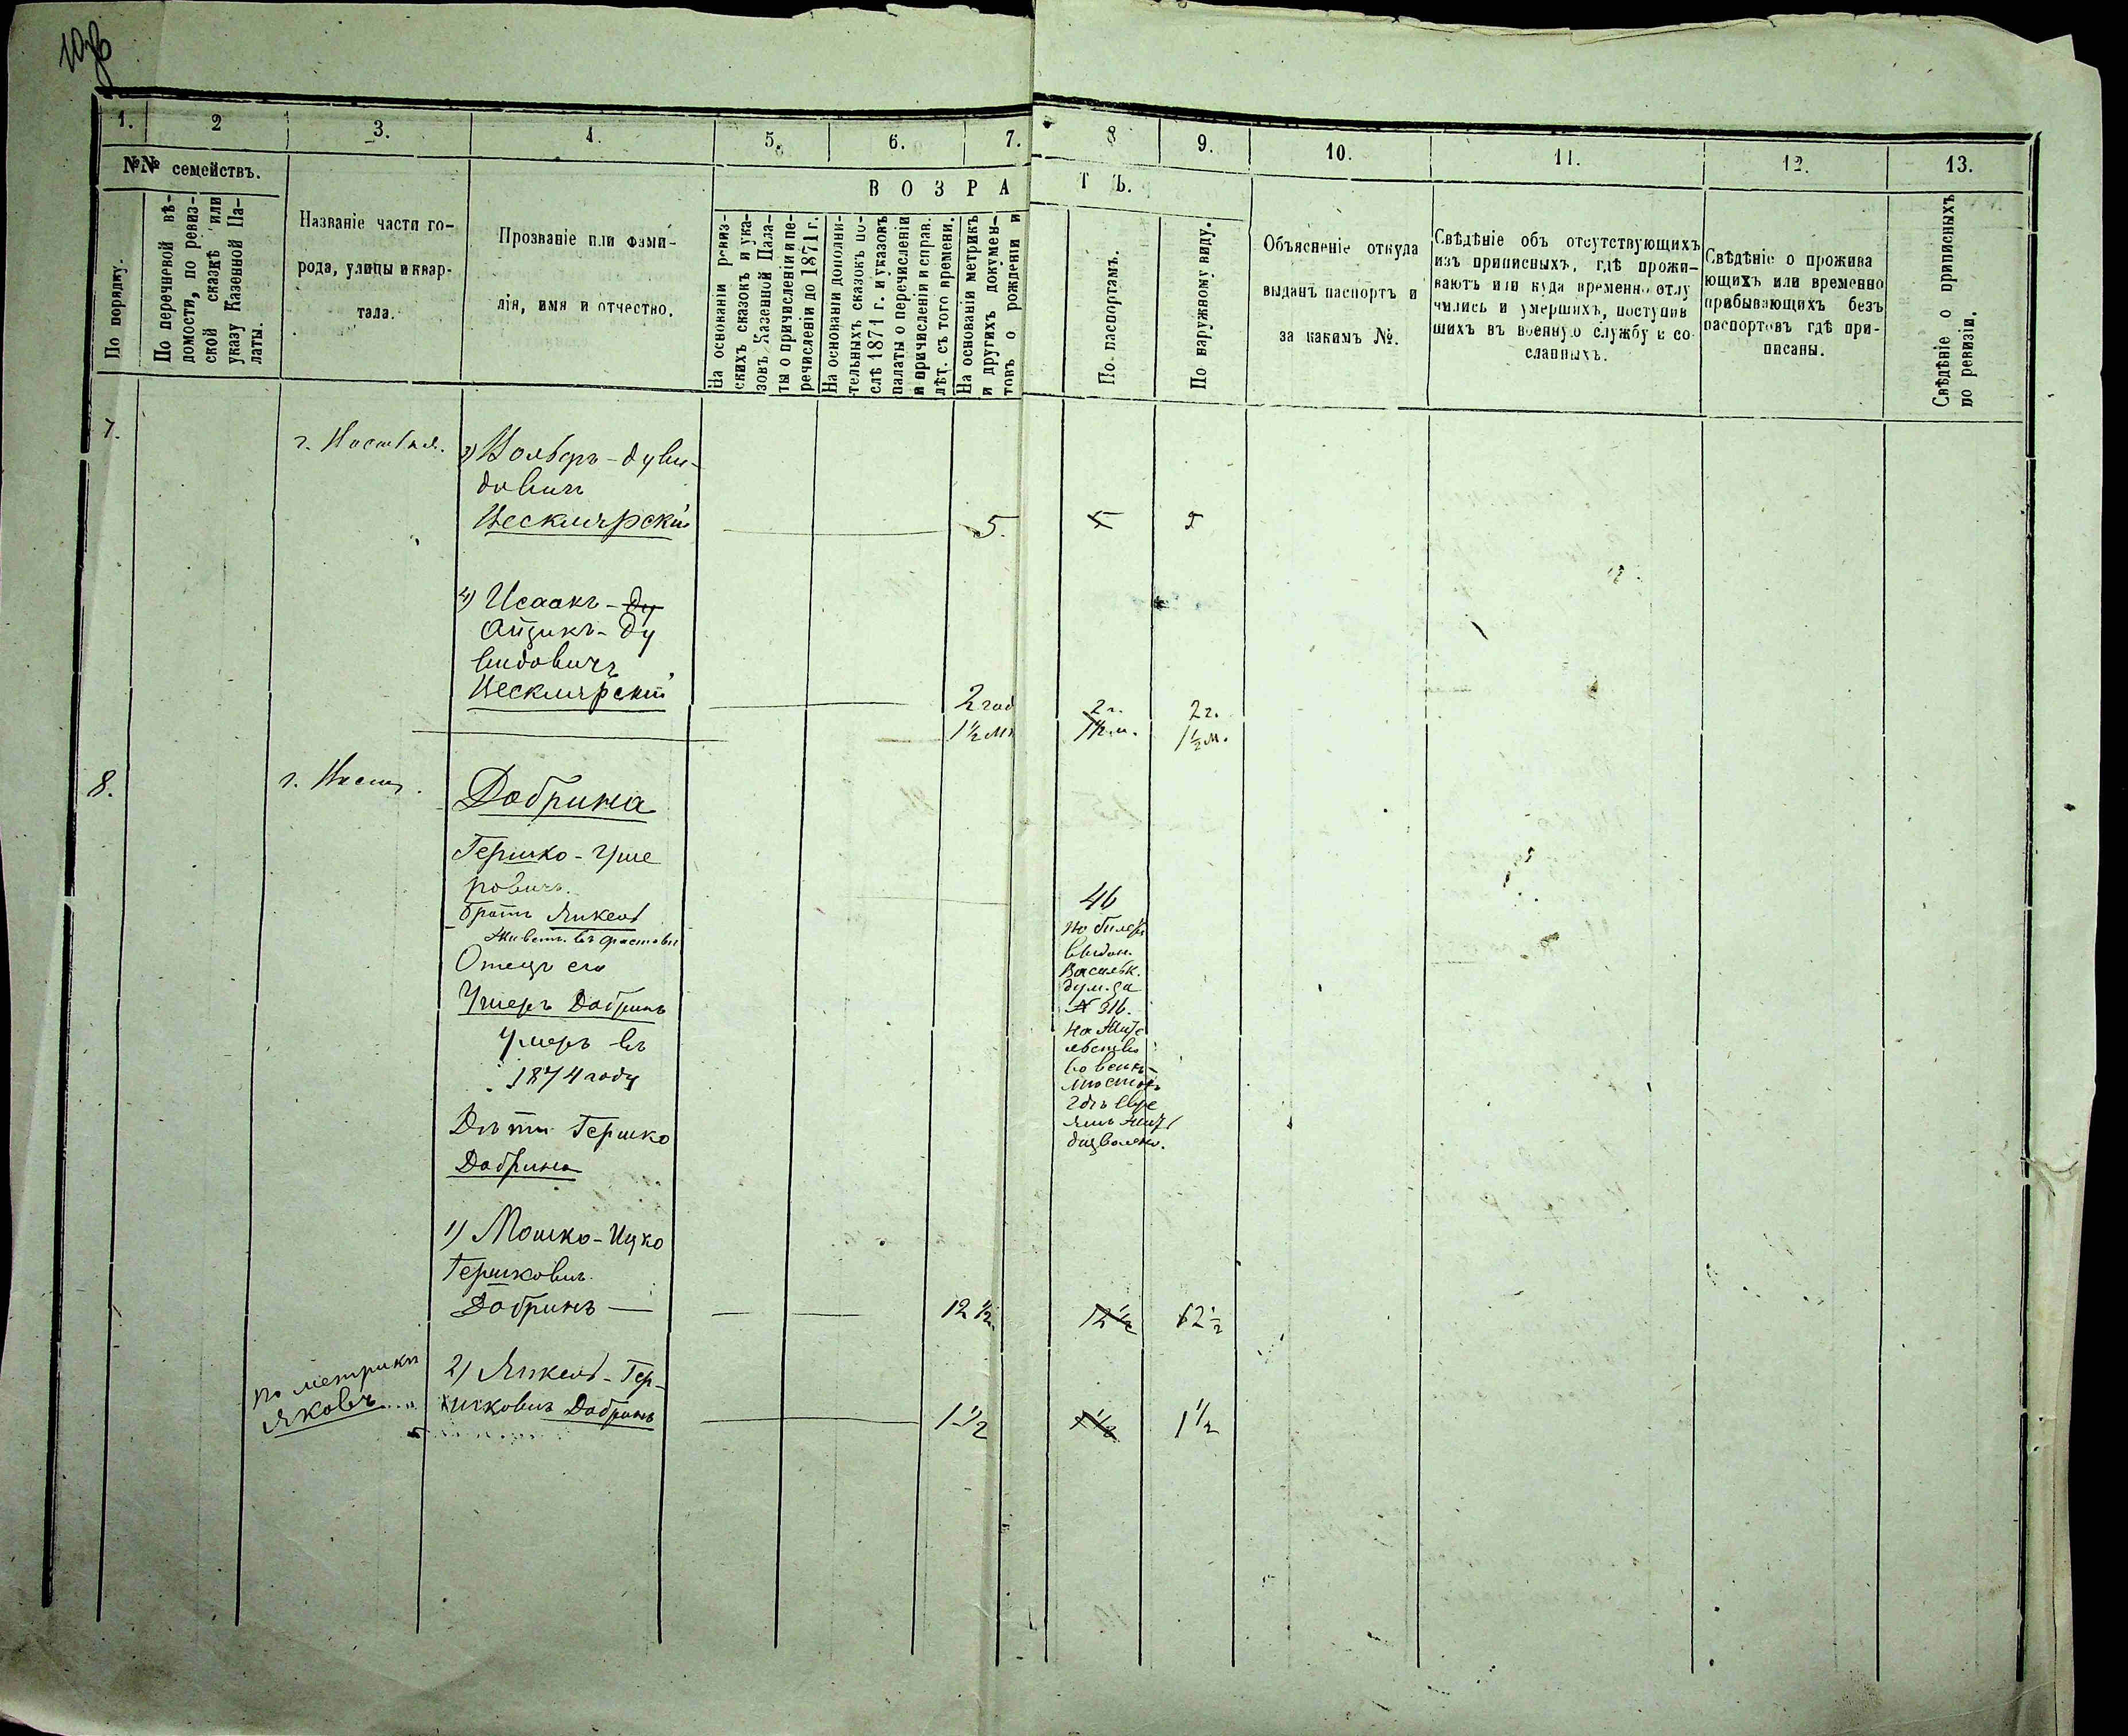 1. 2 3. 4. 5. 6. 7. 8 9. 10. 11. 12. 13.
№№ семействъ.
В О З Р А Т Ъ.
По порядку.
По перечневой вѣ-
домости, по ревиз-
ской сказкѣ или
указу Казенной Па-
латы.
Названіе части го-
рода, улицы и квар-
тала.
Прозваніе или фами-
лія, имя и отчество.
На основаніи ревиз-
скихъ сказокъ и ука-
зовъ Казенной Пала-
ты о причисленіи и пе-
речисленіи до 1871 г.
На основаніи дополни-
тельныхъ сказокъ по-
слѣ 1871 г. и указовъ
палаты о перечисленіи
и причисленіи и справ.
лѣт. съ того времени.
На основаніи метрикъ
и другихъ докумен-
товъ о рожденіи и
По паспортамъ.
По наружному виду.
Объясненіе откуда
выданъ паспортъ и
за какимъ №.
Свѣдѣніе объ отсутствующихъ
изъ приписныхъ, гдѣ прожи-
ваютъ или куда временно отлу
чились и умершихъ, поступив
шихъ въ военную службу и со-
сланныхъ.
Свѣдѣніе о прожива
ющихъ или временно
прибывающихъ безъ
паспортовъ гдѣ при-
писаны.
Свѣдѣніе о приписныхъ
по ревизіи.
7.
3) Вольфъ - Дуви-
довичъ
5. 5 5
4) Исаакъ - Ду
Айзикъ - Ду
видовичъ
2 год 2 г. 2 г.
1½ м 1½ м. 1½ м.
8.
Добрина
Гершко - Уше
ровичъ.
братъ Янкель
Живетъ въ Фастовѣ
Отецъ его
Ушеръ Добринъ
Умеръ въ
1874 году
46
по билету
выдан.
Васильк.
дум. за
№ 316.
на жите
льство
гдѣ Евре
ямъ жит
дозволено.
Дѣти Гершко
Добрина
1) Мошко - Ицко
Гершковичъ
Добринъ — 12 ½ 12 ½ 12 ½
по метрикѣ
Яковъ
2) Янкель - Гер-
шковичъ Добринъ 1 ½ 1 ½ 1 ½